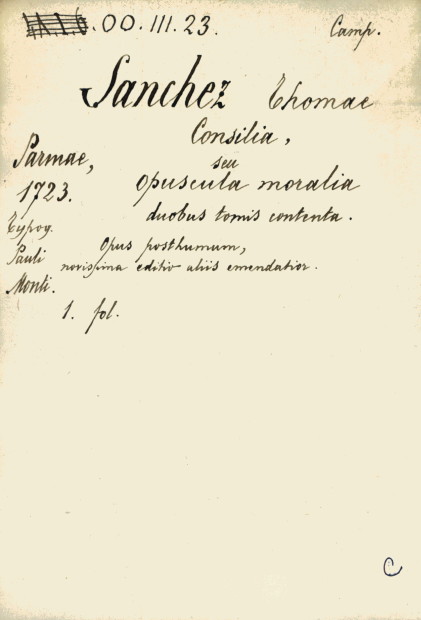 .OO.III.23.
Camp.
Sanchez Thomae
Consilia,
seu
opuscula moralia
duobus tomis contenta.
Parmae,
1723.
Typog.
Pauli
Monti.
Opus posthumum,
novissima editio aliis emendatior.
1. fol.
C